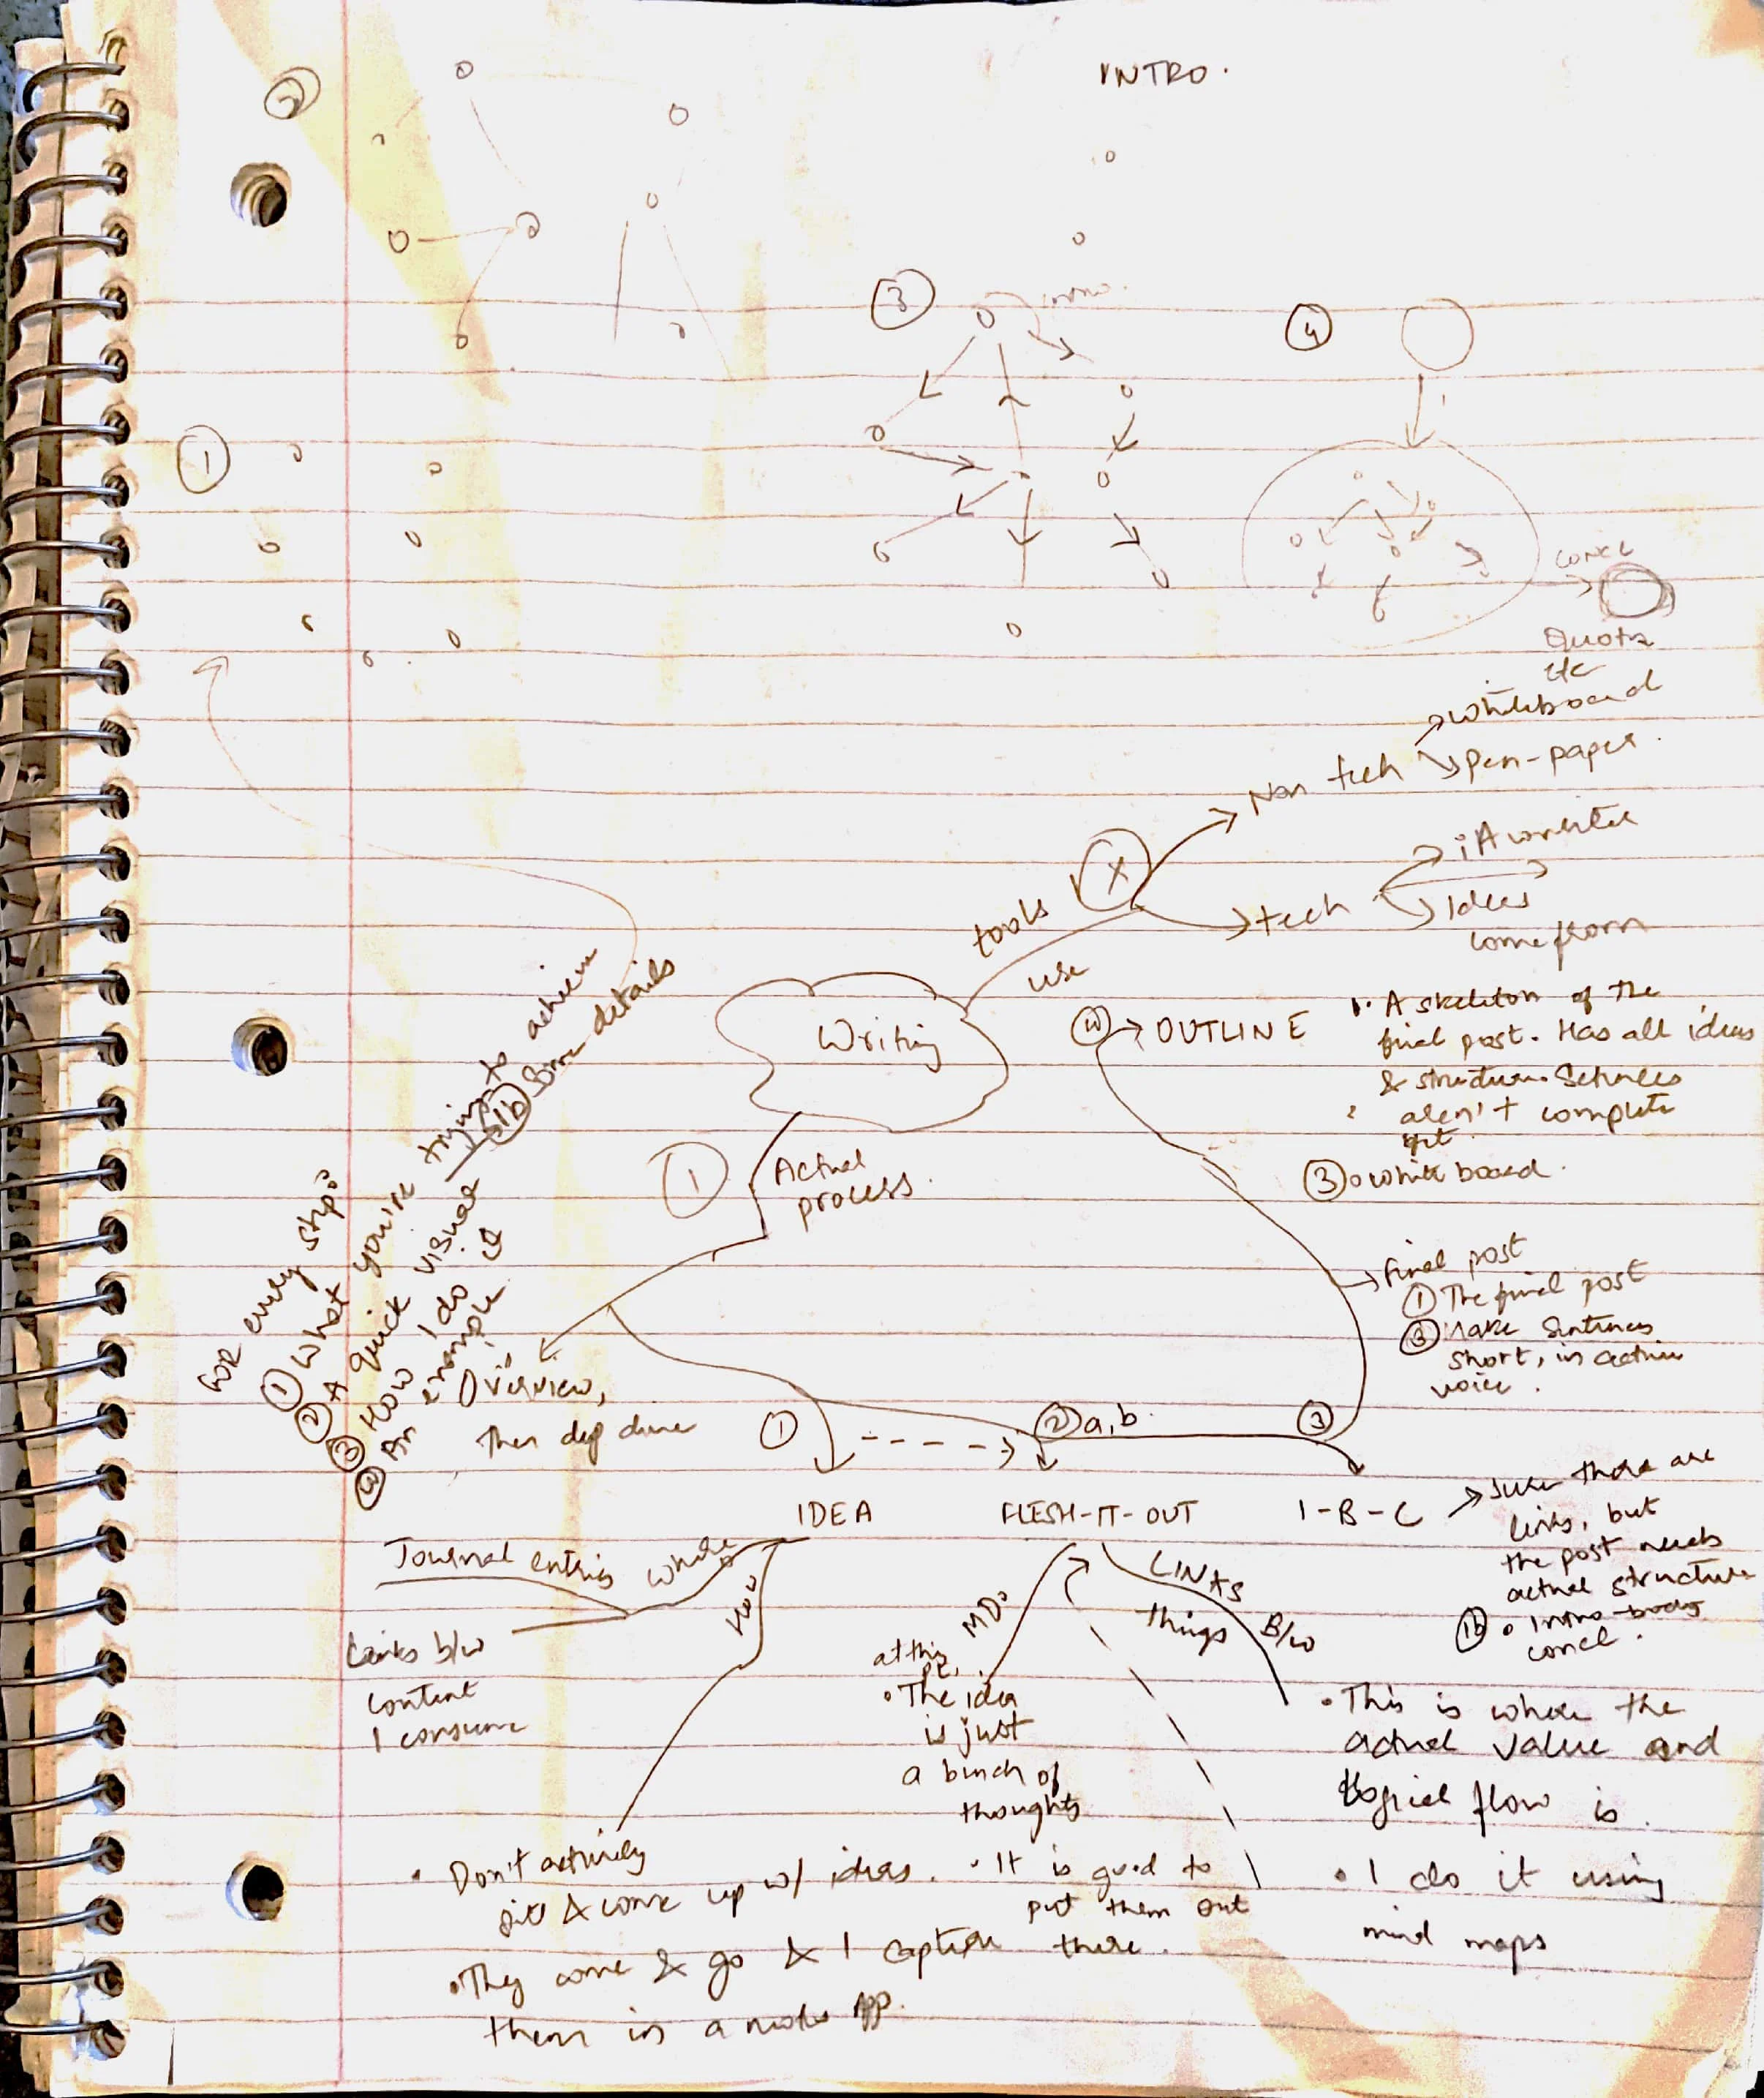 INTRO.
②
③
intro.
④
①
concl
Quotes
etc
whiteboard
Non tech
pen-paper.
X
iA writer
tools
tech
Ideas
come from
use
Writing
④ → OUTLINE
1. A skeleton of the
final post. Has all ideas
& structure. Sentences
aren't complete
yet.
③ whiteboard.
①
Actual
process.
For every step:
① What you're trying to achieve
1b Some details
② A quick visual
③ How I do it
④ An example
Final post
① The final post
③ Make sentences
short, in active
voice.
Overview,
then deep dive
①
② a, b.
③
IDEA
FLESH-IT-OUT
I-B-C
Sure there are
links, but
the post needs
actual structure
1b Intro-body
concl.
Journal entries
where
How
Links b/w
content
I consume
MD:
at this
pt,
• The idea
is just
a bunch of
thoughts
• It is good to
put them out
there.
LINKS
B/w
things
• This is where the
actual value and
logical flow is.
• I do it using
mind maps
• Don't actively
sit & come up w/ ideas.
• They come & go & I capture
them in a notes app.